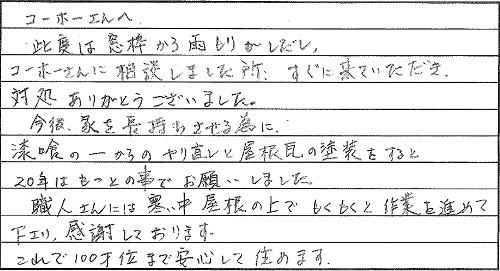 コーホーさんへ
此度は窓枠から雨もりがしだし、
コーホーさんに相談しました所、すぐに来ていただき、
対処ありがとうございました。
今後、家を長持ちさせる為に、
漆喰の一からのやり直しと屋根瓦の塗装をすると
20年はもつとの事でお願いしました。
職人さんには寒い中屋根の上でもくもくと作業を進めて
下さり、感謝しております。
これで100才位まで安心して住めます。